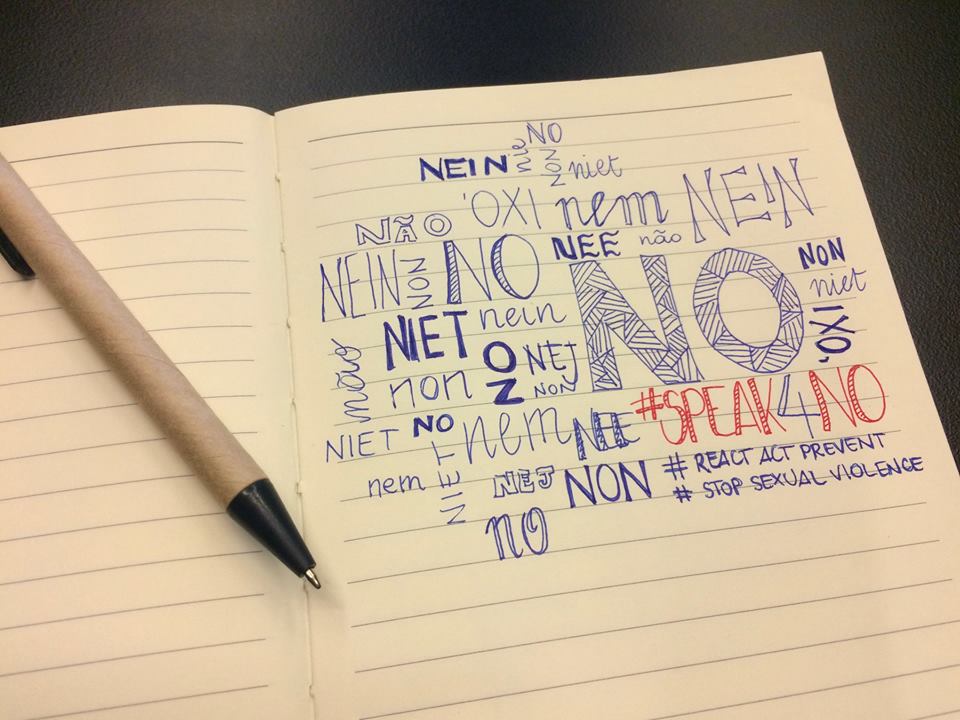 NO
NEIN nie NON niet
'OXI nem NEIN
NÃO NEE não NON
NEIN NON NO NO niet
NIET nein 'OXI
não NO NEJ
non NON
#SPEAK4NO
NIET NO nem NEE
# REACT ACT PREVENT
nem NIET NEJ NON # STOP SEXUAL VIOLENCE
NO